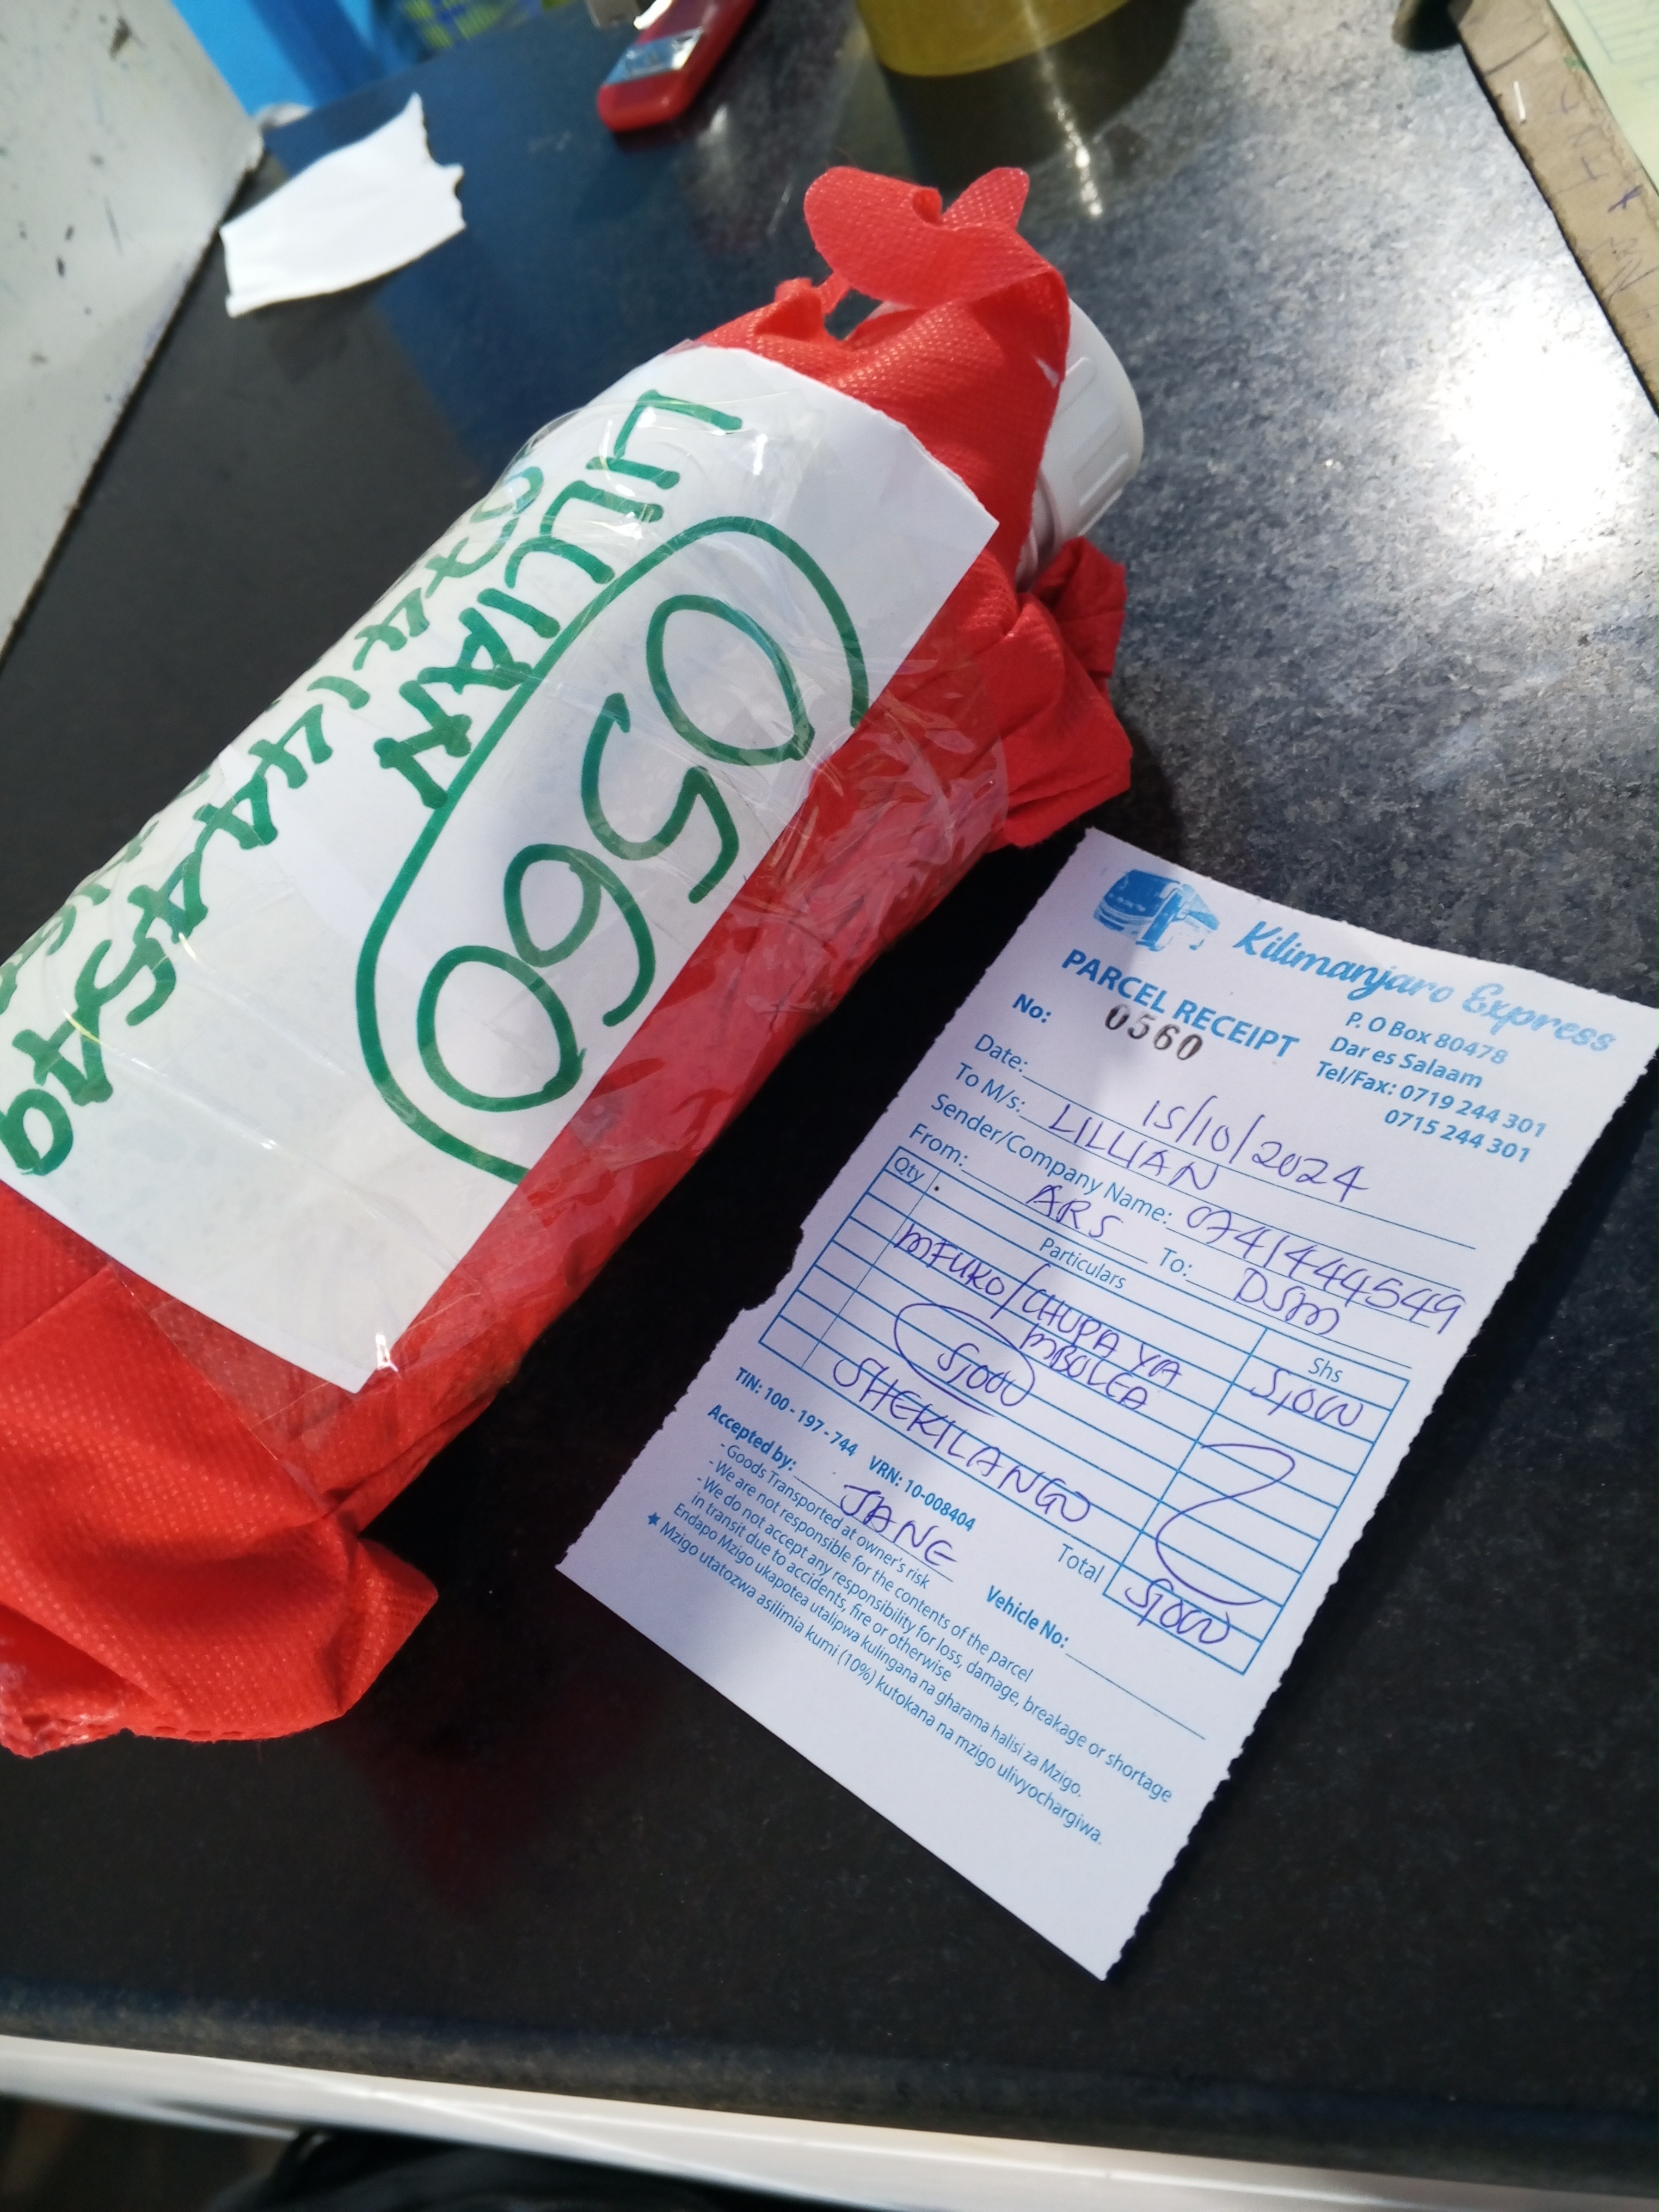 LILLIAN
0741444549
0560
Kilimanjaro Express
P. O Box 80478
Dar es Salaam
Tel/Fax: 0719 244 301
0715 244 301
PARCEL RECEIPT
No: 0560
Date: 15/10/2024
To M/s: LILLIAN
Sender/Company Name: 0741444549
From: ARS To: DSM
Qty Particulars Shs
MFUKO/CHUPA YA 5,000
MBOLEA
5,000
SHEKILANGO
Total 5,000
TIN: 100 - 197 - 744 VRN: 10-008404
Accepted by: JANE Vehicle No:
- Goods Transported at owner's risk
- We are not responsible for the contents of the parcel
- We do not accept any responsibility for loss, damage, breakage or shortage
in transit due to accidents, fire or otherwise
Endapo Mzigo ukapotea utalipwa kulingana na gharama halisi za Mzigo.
★ Mzigo utatozwa asilimia kumi (10%) kutokana na mzigo ulivyochargiwa.